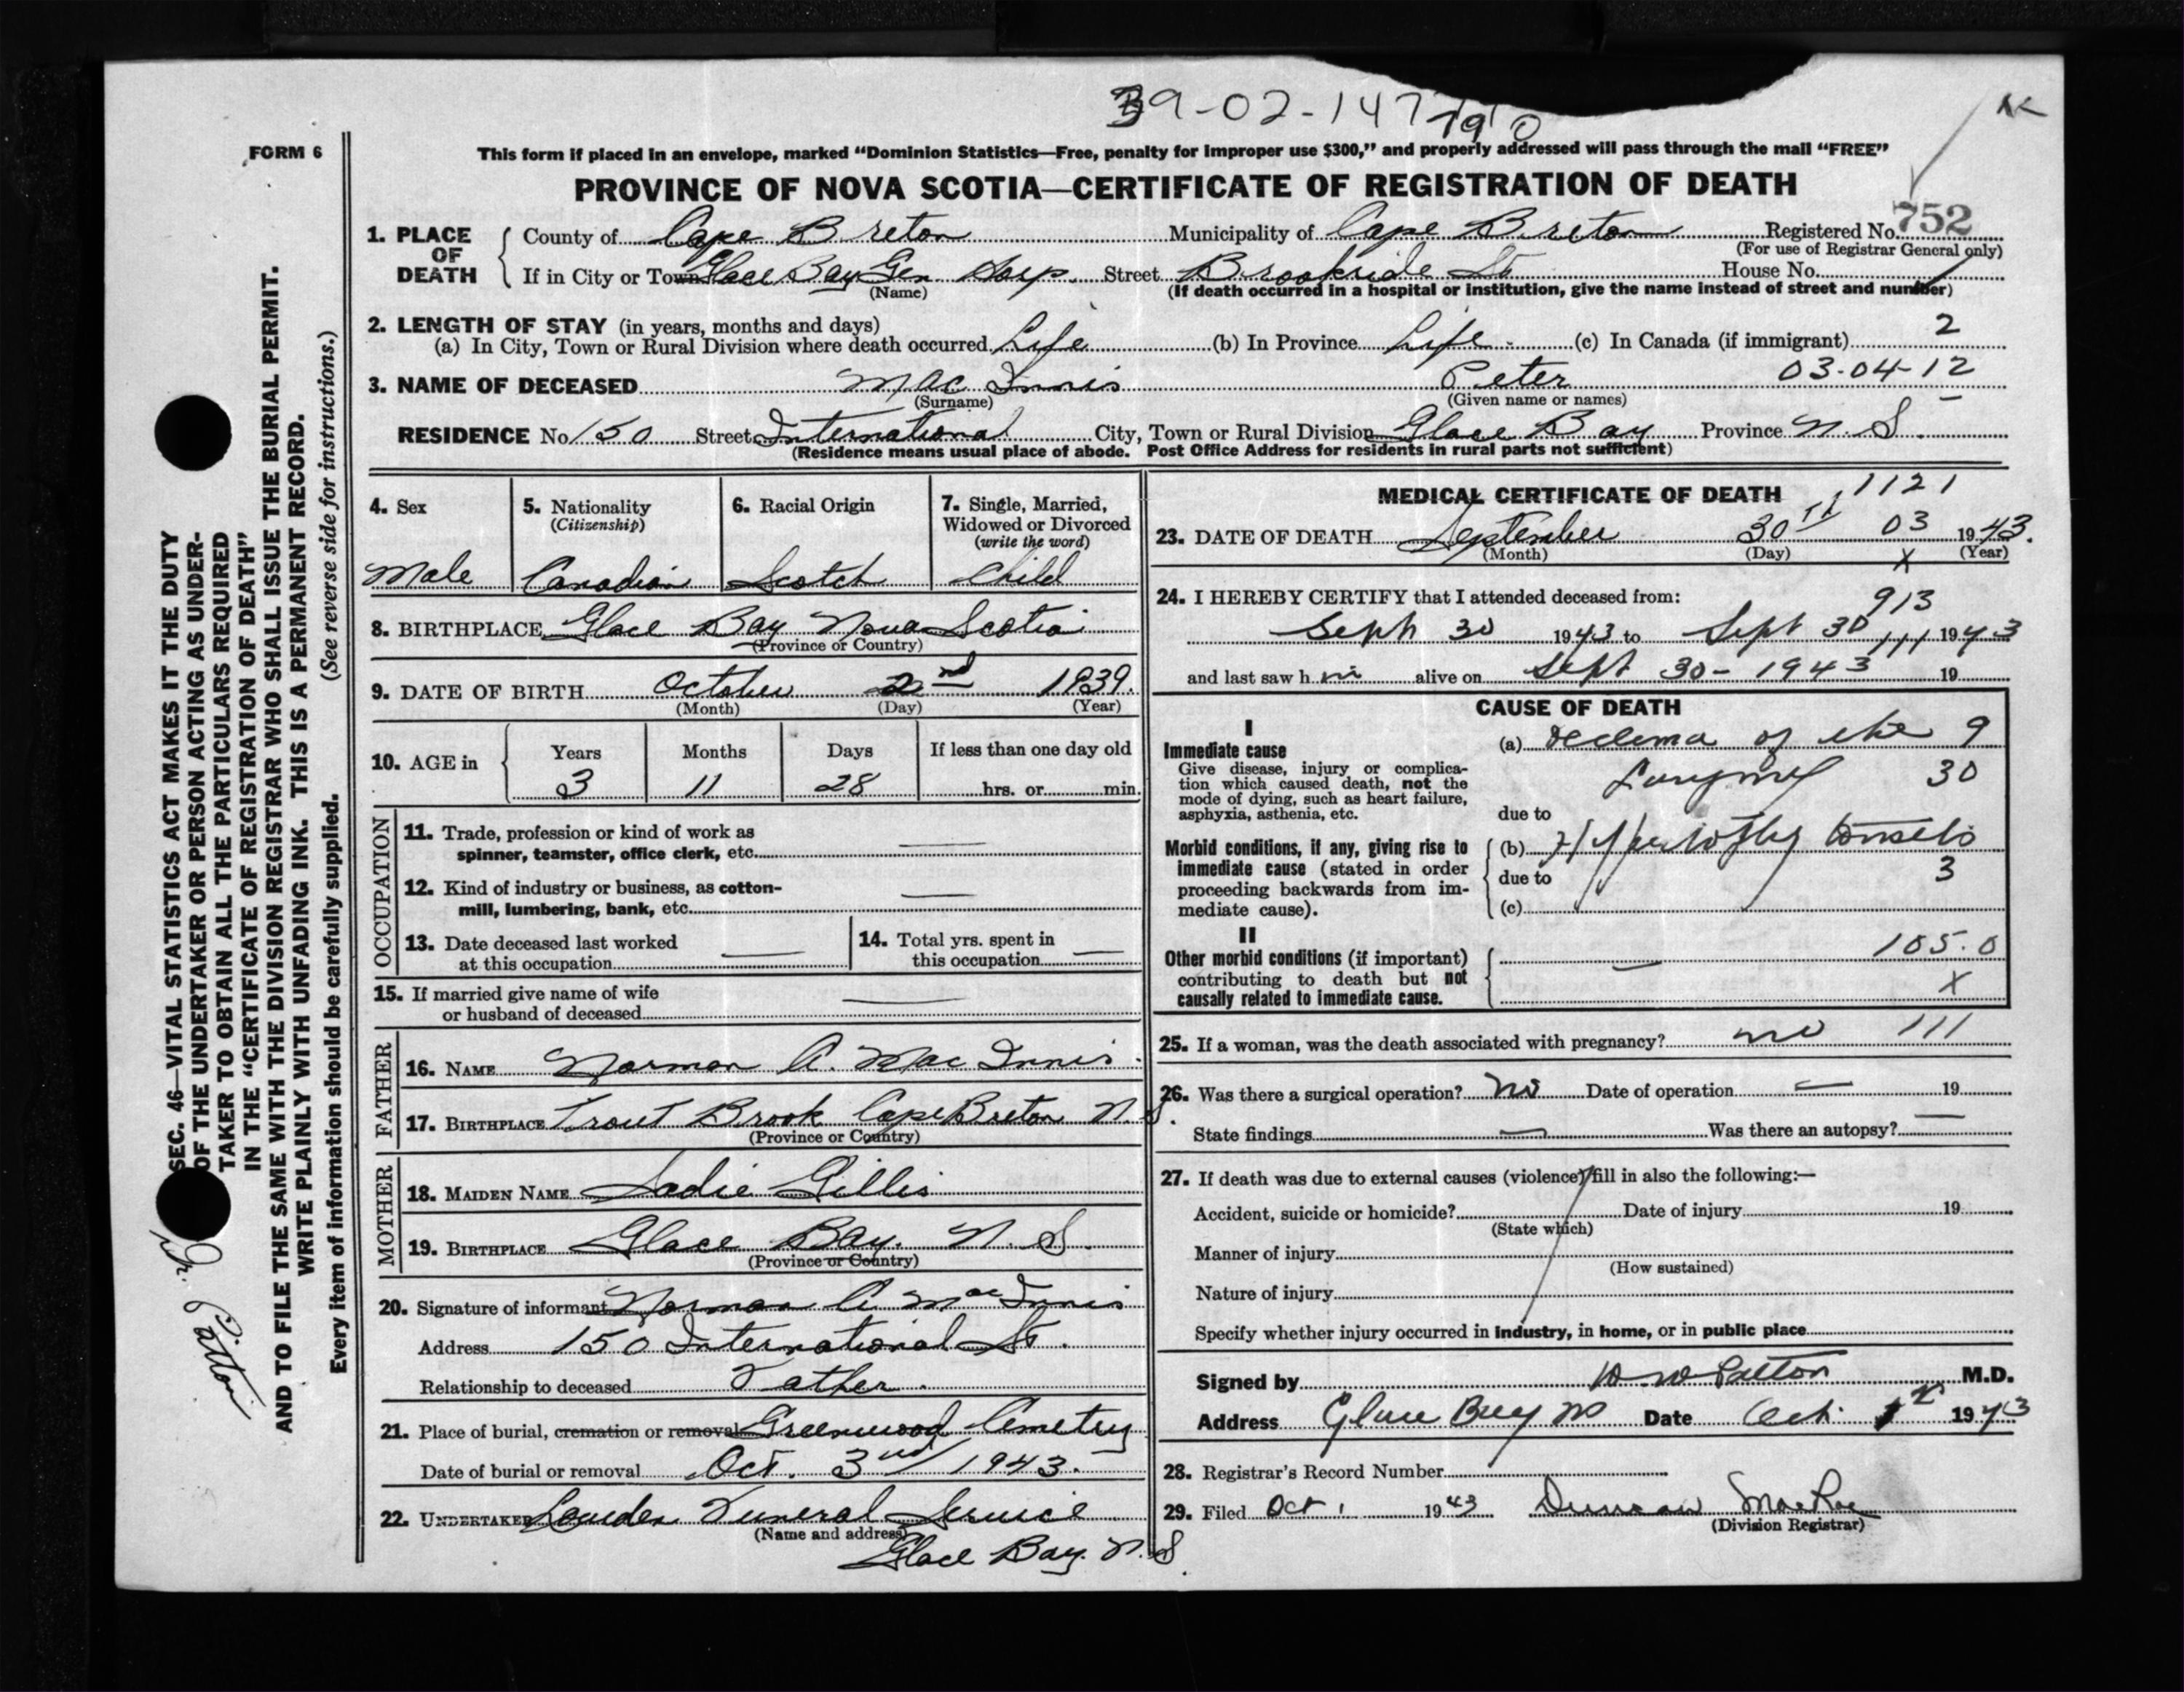 39-02-147710
FORM 6
This form if placed in an envelope, marked “Dominion Statistics—Free, penalty for improper use $300,” and properly addressed will pass through the mail “FREE”
PROVINCE OF NOVA SCOTIA—CERTIFICATE OF REGISTRATION OF DEATH
752
1. PLACE OF DEATH
County of Cape Breton Municipality of Cape Breton Registered No.
(For use of Registrar General only)
If in City or Town Glace Bay Gen Hosp. Street Brookside St House No.
(Name) (If death occurred in a hospital or institution, give the name instead of street and number)
2. LENGTH OF STAY (in years, months and days) 2
(a) In City, Town or Rural Division where death occurred Life (b) In Province Life (c) In Canada (if immigrant)
3. NAME OF DECEASED Mac Innis Peter 03-04-12
(Surname) (Given name or names)
RESIDENCE No 150 Street International City, Town or Rural Division Glace Bay Province N. S.
(Residence means usual place of abode. Post Office Address for residents in rural parts not sufficient)
4. Sex
Male
5. Nationality
(Citizenship)
Canadian
6. Racial Origin
Scotch
7. Single, Married,
Widowed or Divorced
(write the word)
Child
8. BIRTHPLACE Glace Bay Nova Scotia
(Province or Country)
9. DATE OF BIRTH October 2nd 1939.
(Month) (Day) (Year)
10. AGE in
Years Months Days If less than one day old
3 11 28 hrs. or min.
OCCUPATION
11. Trade, profession or kind of work as
spinner, teamster, office clerk, etc. —
12. Kind of industry or business, as cotton-
mill, lumbering, bank, etc. —
13. Date deceased last worked
at this occupation —
14. Total yrs. spent in
this occupation —
15. If married give name of wife
or husband of deceased —
FATHER
16. NAME Norman A. Mac Innis.
17. BIRTHPLACE Trout Brook Cape Breton N.S.
(Province or Country)
MOTHER
18. MAIDEN NAME Sadie Gillis
19. BIRTHPLACE Glace Bay. N. S.
(Province or Country)
20. Signature of informant Norman A MacInnis
Address 150 International St.
Relationship to deceased Father.
21. Place of burial, cremation or removal Greenwood Cemetry
Date of burial or removal Oct. 3rd 1943.
22. UNDERTAKER Funeral Service
(Name and address)
Glace Bay. N.S.
MEDICAL CERTIFICATE OF DEATH 1121
23. DATE OF DEATH September 30th 03 1943.
(Month) (Day) (Year)
X
24. I HEREBY CERTIFY that I attended deceased from:
913
Sept 30 1943 to Sept 30 111 1943
and last saw h im alive on Sept 30- 1943 19
CAUSE OF DEATH
I
Immediate cause
Give disease, injury or complica-
tion which caused death, not the
mode of dying, such as heart failure,
asphyxia, asthenia, etc.
(a) Oedema of the 9
Larynx 30
due to
Morbid conditions, if any, giving rise to
immediate cause (stated in order
proceeding backwards from im-
mediate cause).
(b) Hypertrophy tonsils
due to 3
(c)
II
Other morbid conditions (if important)
contributing to death but not
causally related to immediate cause.
— 105.0
X
25. If a woman, was the death associated with pregnancy? no 111
26. Was there a surgical operation? No Date of operation — 19
State findings — Was there an autopsy? —
27. If death was due to external causes (violence) fill in also the following:—
Accident, suicide or homicide? Date of injury 19
(State which)
Manner of injury
(How sustained)
Nature of injury
Specify whether injury occurred in industry, in home, or in public place
Signed by Patton M.D.
Address Glace Bay NS Date Oct. 1st 1943
28. Registrar's Record Number
29. Filed Oct 1 1943 Duncan MacRae
(Division Registrar)
SEC. 46—VITAL STATISTICS ACT MAKES IT THE DUTY
OF THE UNDERTAKER OR PERSON ACTING AS UNDER-
TAKER TO OBTAIN ALL THE PARTICULARS REQUIRED
IN THE “CERTIFICATE OF REGISTRATION OF DEATH”
AND TO FILE THE SAME WITH THE DIVISION REGISTRAR WHO SHALL ISSUE THE BURIAL PERMIT.
WRITE PLAINLY WITH UNFADING INK. THIS IS A PERMANENT RECORD.
Every item of information should be carefully supplied. (See reverse side for instructions.)
Dr. Patton